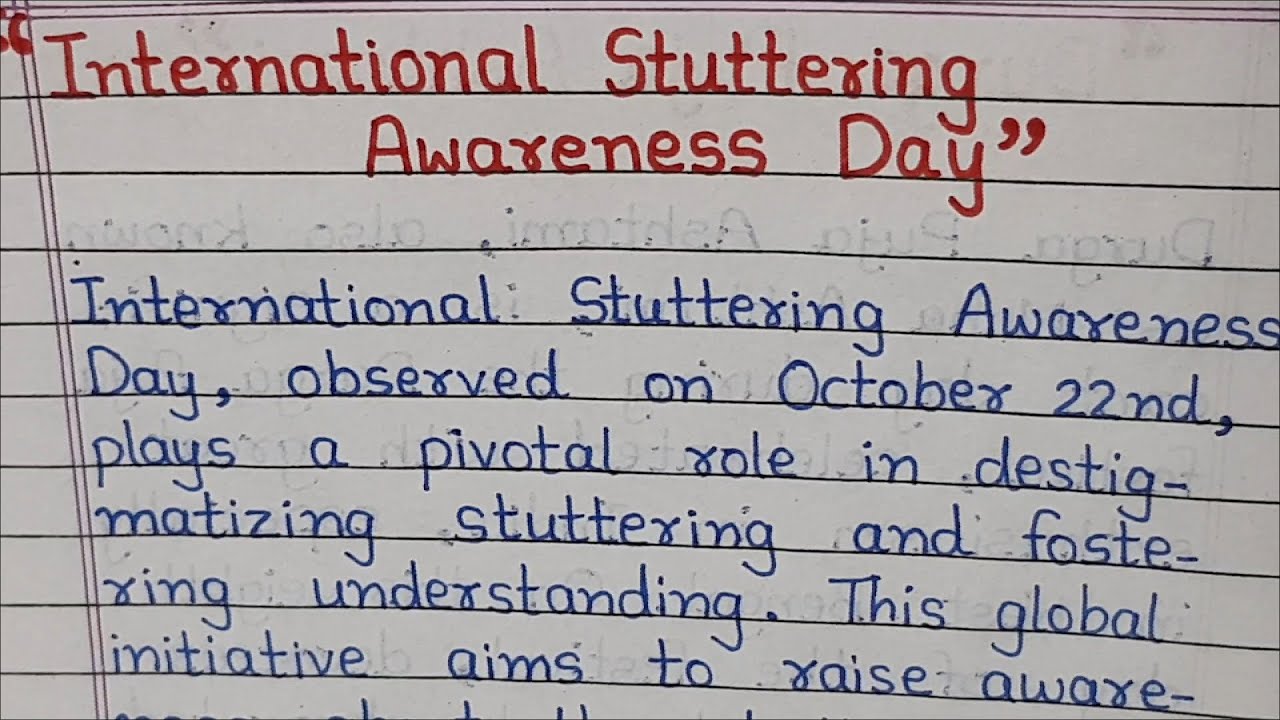 “International Stuttering
Awareness Day”
International Stuttering Awareness
Day, observed on October 22nd,
plays a pivotal role in destig-
matizing stuttering and foste-
ring understanding. This global
initiative aims to raise aware-